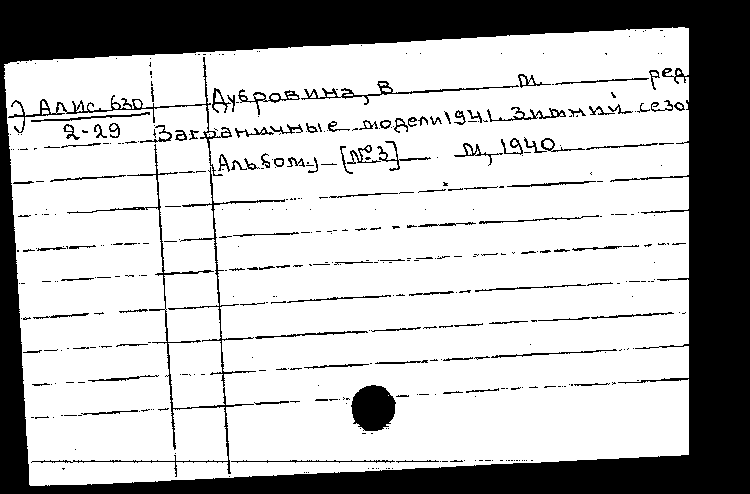 Алис. 630 Дубровина, В м. ред
2-29 Заграничные модели 1941. Зимний сезо
[Альбом] [№3] М, 1940.